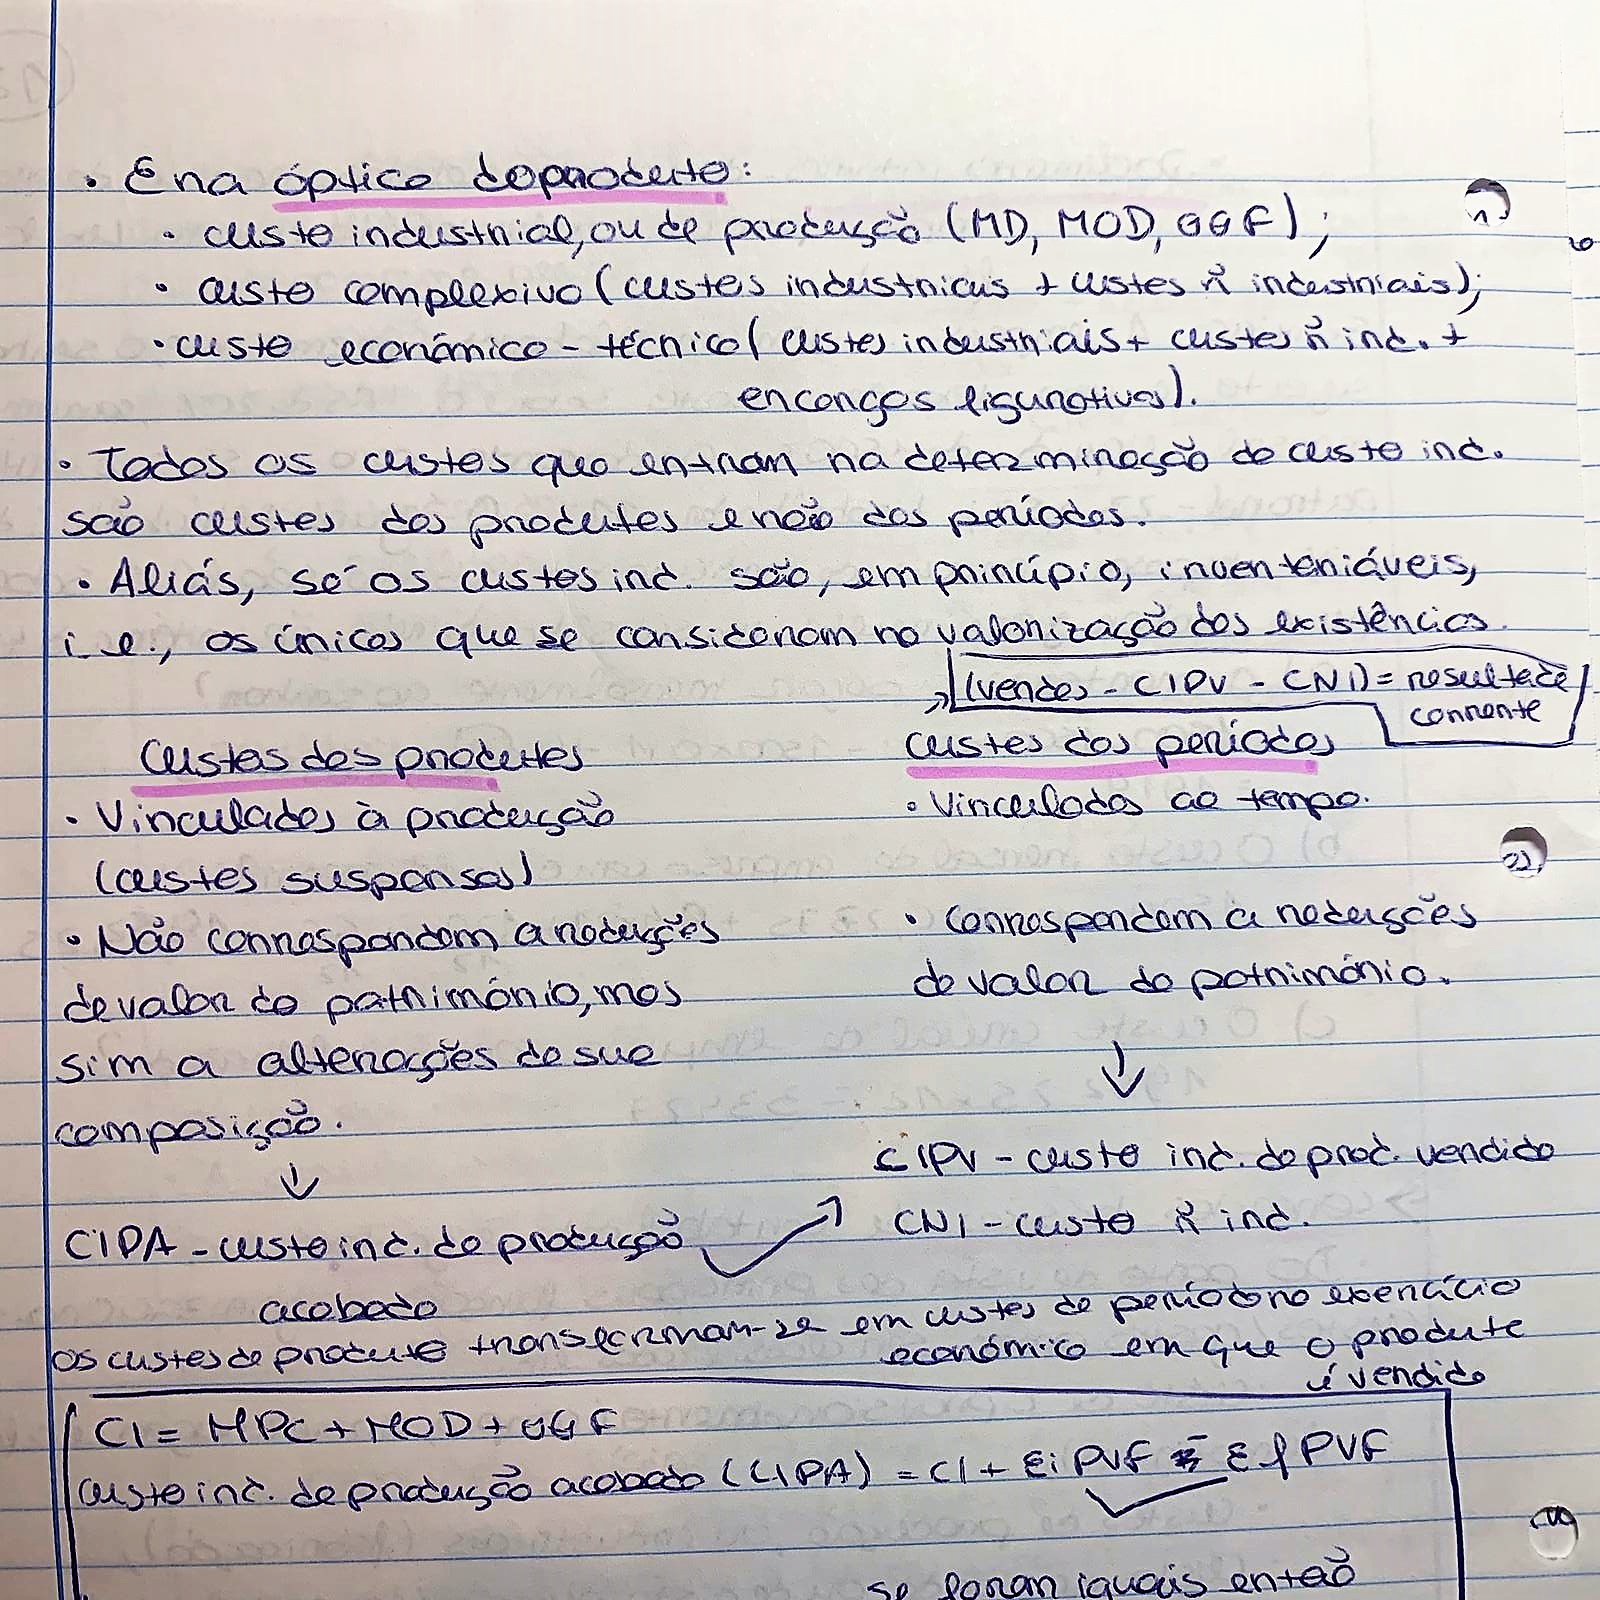 • E na óptica do produto:
• custo industrial, ou de produção (MD, MOD, GGF);
• custo complexivo (custos industriais + custos ñ industriais);
• custo económico-técnico (custos industriais + custos ñ ind. +
encargos figurativos).
• Todos os custos que entram na determinação do custo ind.
são custos dos produtos e não dos períodos.
• Aliás, só os custos ind. são, em princípio, inventariáveis,
i.e., os únicos que se consideram na valorização das existências.
(vendas - CIPV - CNI) = resultado
corrente
Custos dos produtos
• Vinculados à produção
(custos suspensos)
• Não correspondem a reduções
de valor do património, mas
sim a alterações da sua
composição.
↓
CIPA - custo ind. de produção
acabada
Custos dos períodos
• Vinculados ao tempo.
• Correspondem a reduções
de valor do património.
↓
CIPV - custo ind. do prod. vendido
CNI - custo ñ ind.
Os custos do produto transformam-se em custos do período no exercício
económico em que o produto
é vendido
CI = MPC + MOD + GGF
Custo ind. de produção acabada (CIPA) = CI + EiPVF - EfPVF
se foram iguais então